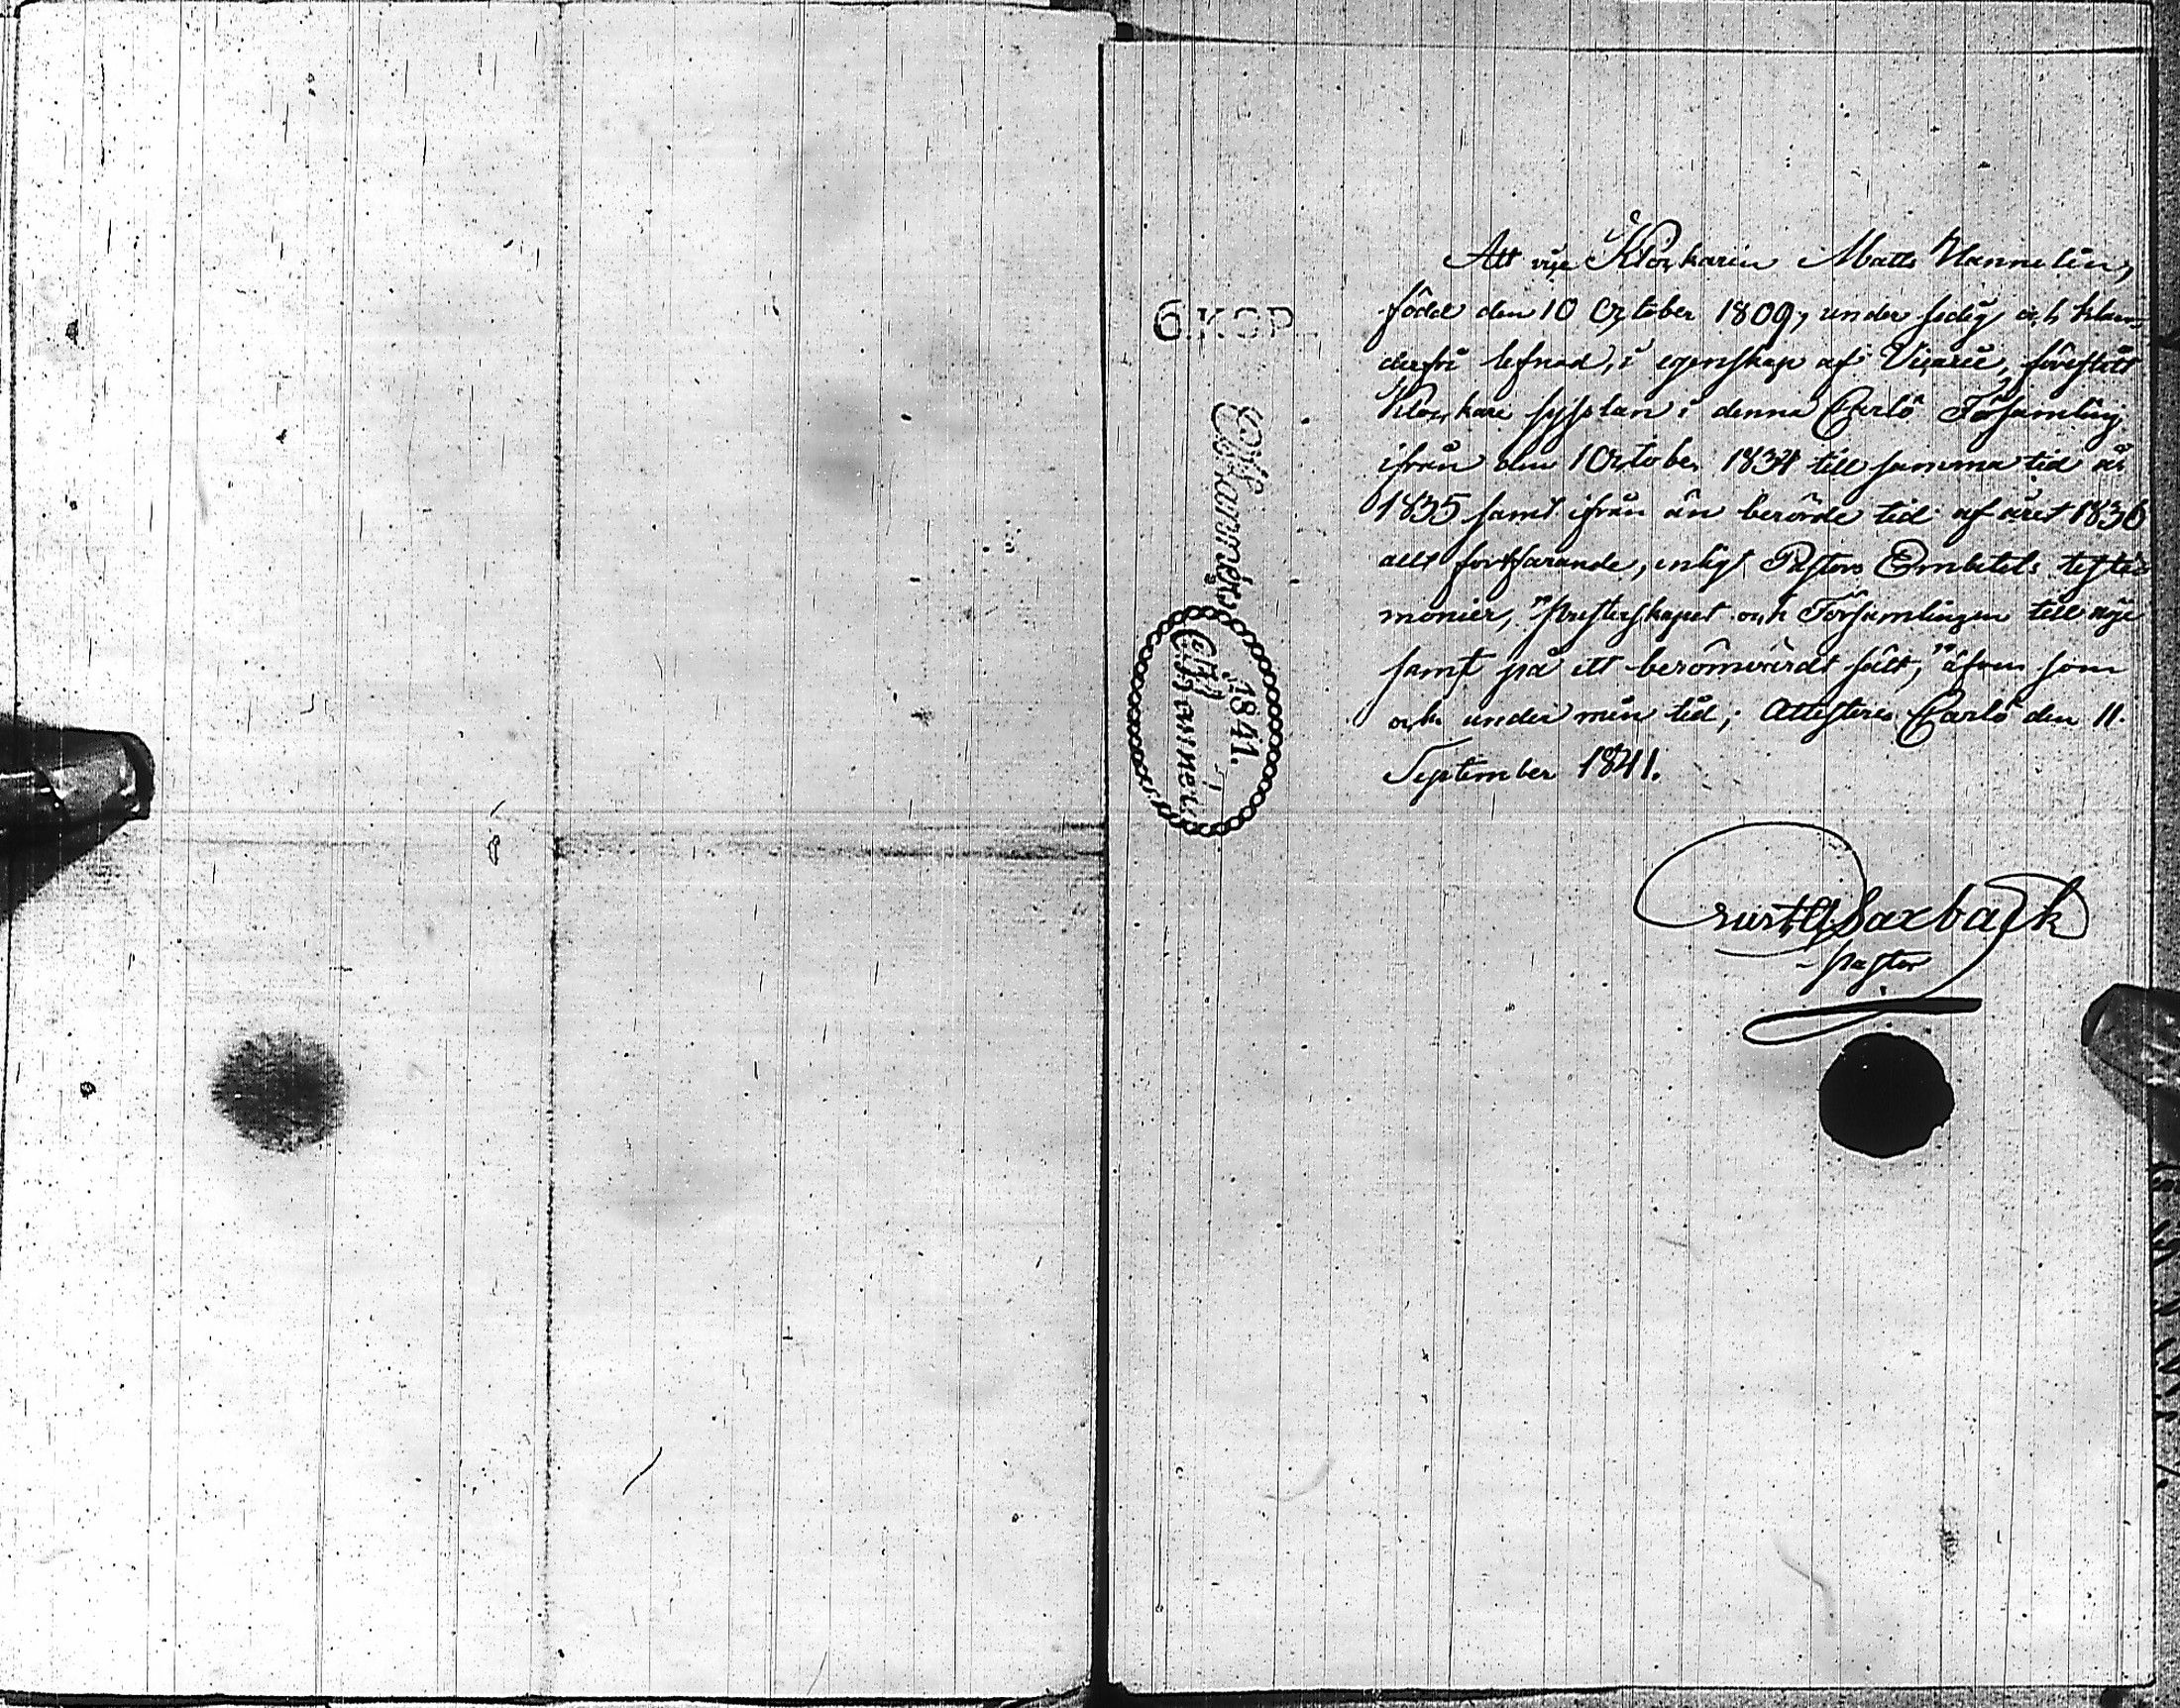 6. KOP.
Charta
1841.
Att vice Klockaren Matts Hannelin,
född den 10 October 1809, under sedig och klan-
derfri lefnad, i egenskap af Vicarie, förestått
Klockare sysslan i denna Carlö Församling
ifrån den 1 October 1834 till samma tid år
1835 samt ifrån än berörde tid af året 1836
allt fortfarande, enligt Pastors Embetets testi-
monier, "Presterskapet och Församlingen till nöje
samt på ett berömvärdt sätt," äfven som
och under min tid; Attesteras Carlö den 11.
September 1841.
Saxback
pastor